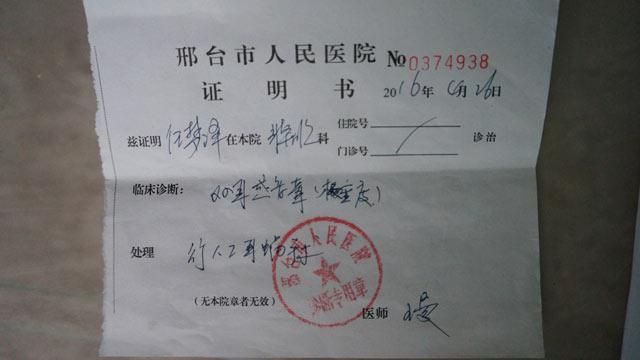 邢台市人民医院 №0374938
证明书 2016年 月26日
兹证明 任梦泽 在本院 科 住院号
门诊号 诊治
临床诊断: 双耳 聋(极重度)
处理 行人工耳蜗
邢台市人民医院
诊断专用章
(无本院章者无效) 医师